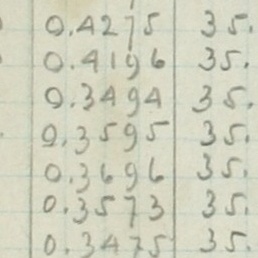 0.4275 35.
0.4196 35.
0.3494 35.
0.3595 35.
0.3696 35.
0.3573 35.
0.3475 35.